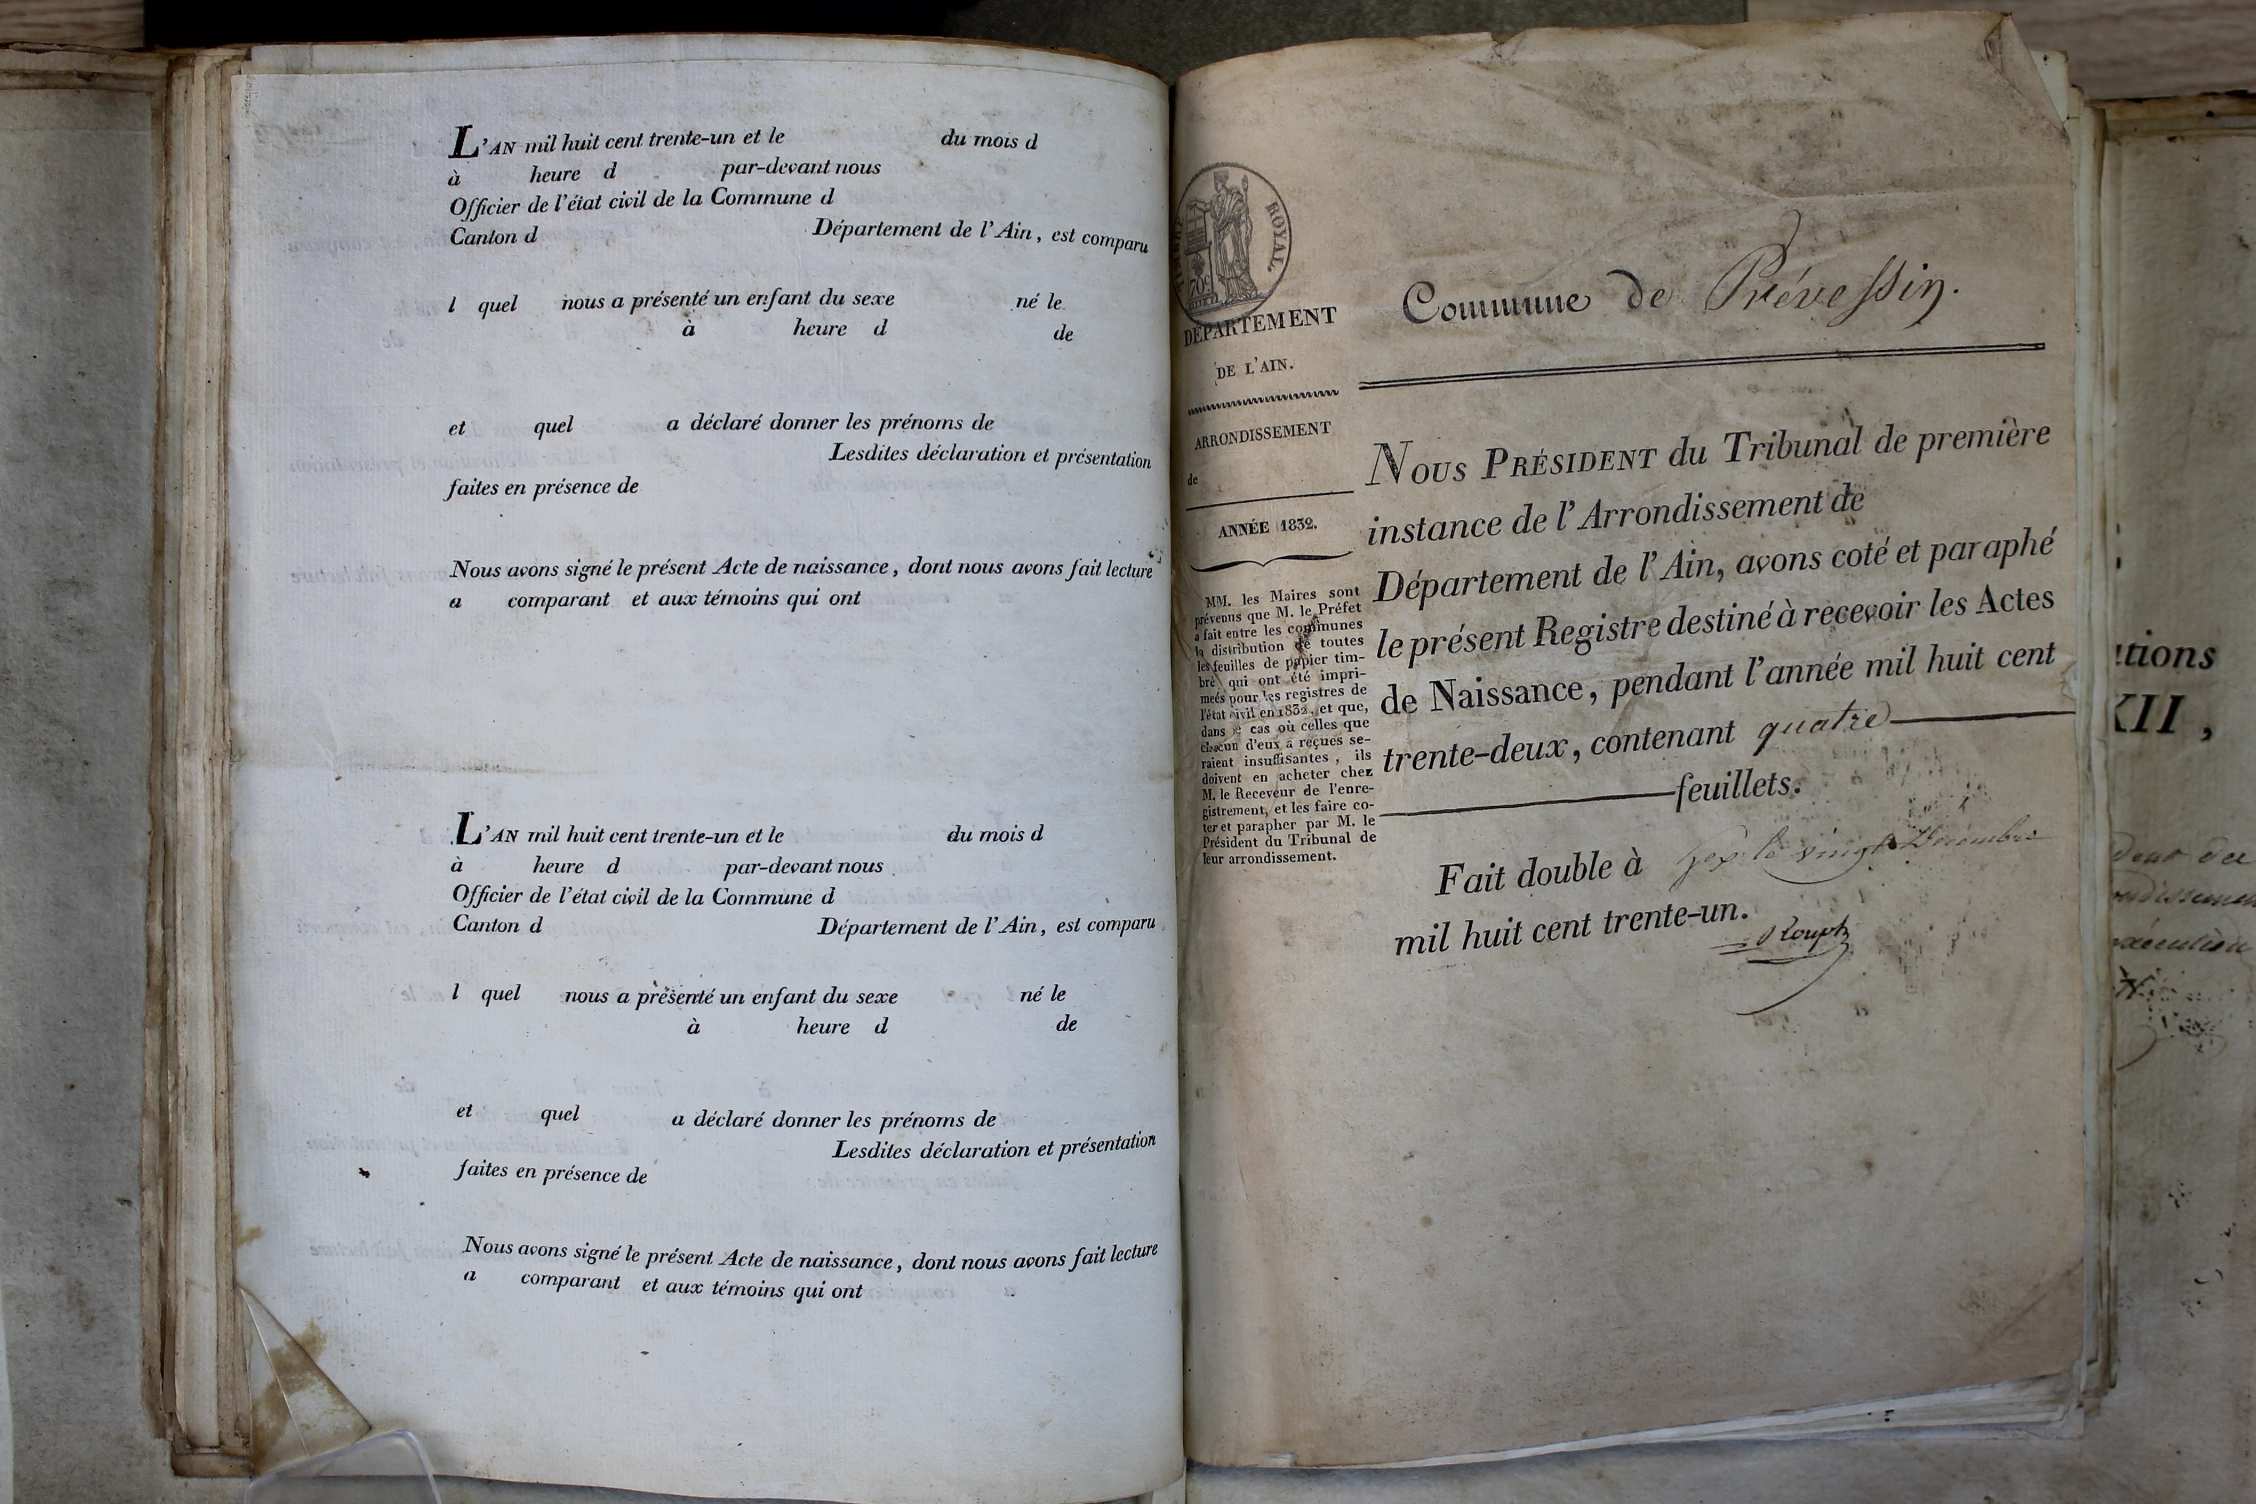 L'AN mil huit cent trente-un et le du mois d
à heure d par-devant nous
Officier de l'état civil de la Commune d
Canton d Département de l'Ain, est comparu
l quel nous a présenté un enfant du sexe né le
à heure d de
et quel a déclaré donner les prénoms de
Lesdites déclaration et présentation
faites en présence de
Nous avons signé le présent Acte de naissance, dont nous avons fait lecture
a comparant et aux témoins qui ont
L'AN mil huit cent trente-un et le du mois d
à heure d par-devant nous
Officier de l'état civil de la Commune d
Canton d Département de l'Ain, est comparu
l quel nous a présenté un enfant du sexe né le
à heure d de
et quel a déclaré donner les prénoms de
Lesdites déclaration et présentation
faites en présence de
Nous avons signé le présent Acte de naissance, dont nous avons fait lecture
a comparant et aux témoins qui ont
ROYAL.
70c
DÉPARTEMENT
DE L'AIN.
ARRONDISSEMENT
de
ANNÉE 1832.
MM. les Maires sont
prévenus que M. le Préfet
a fait entre les communes
la distribution de toutes
les feuilles de papier tim-
bré qui ont été impri-
meés pour les registres de
l'état civil en 1832, et que,
dans le cas où celles que
chacun d'eux a reçues se-
raient insuffisantes, ils
doivent en acheter chez
M. le Receveur de l'enre-
gistrement, et les faire co-
ter et parapher par M. le
Président du Tribunal de
leur arrondissement.
Commune de Prévessin.
NOUS PRÉSIDENT du Tribunal de première
instance de l'Arrondissement de
Département de l'Ain, avons coté et paraphé
le présent Registre destiné à recevoir les Actes
de Naissance, pendant l'année mil huit cent
trente-deux, contenant quatre
feuillets.
Fait double à Gex le vingt Décembre
mil huit cent trente-un.
ations
XII,